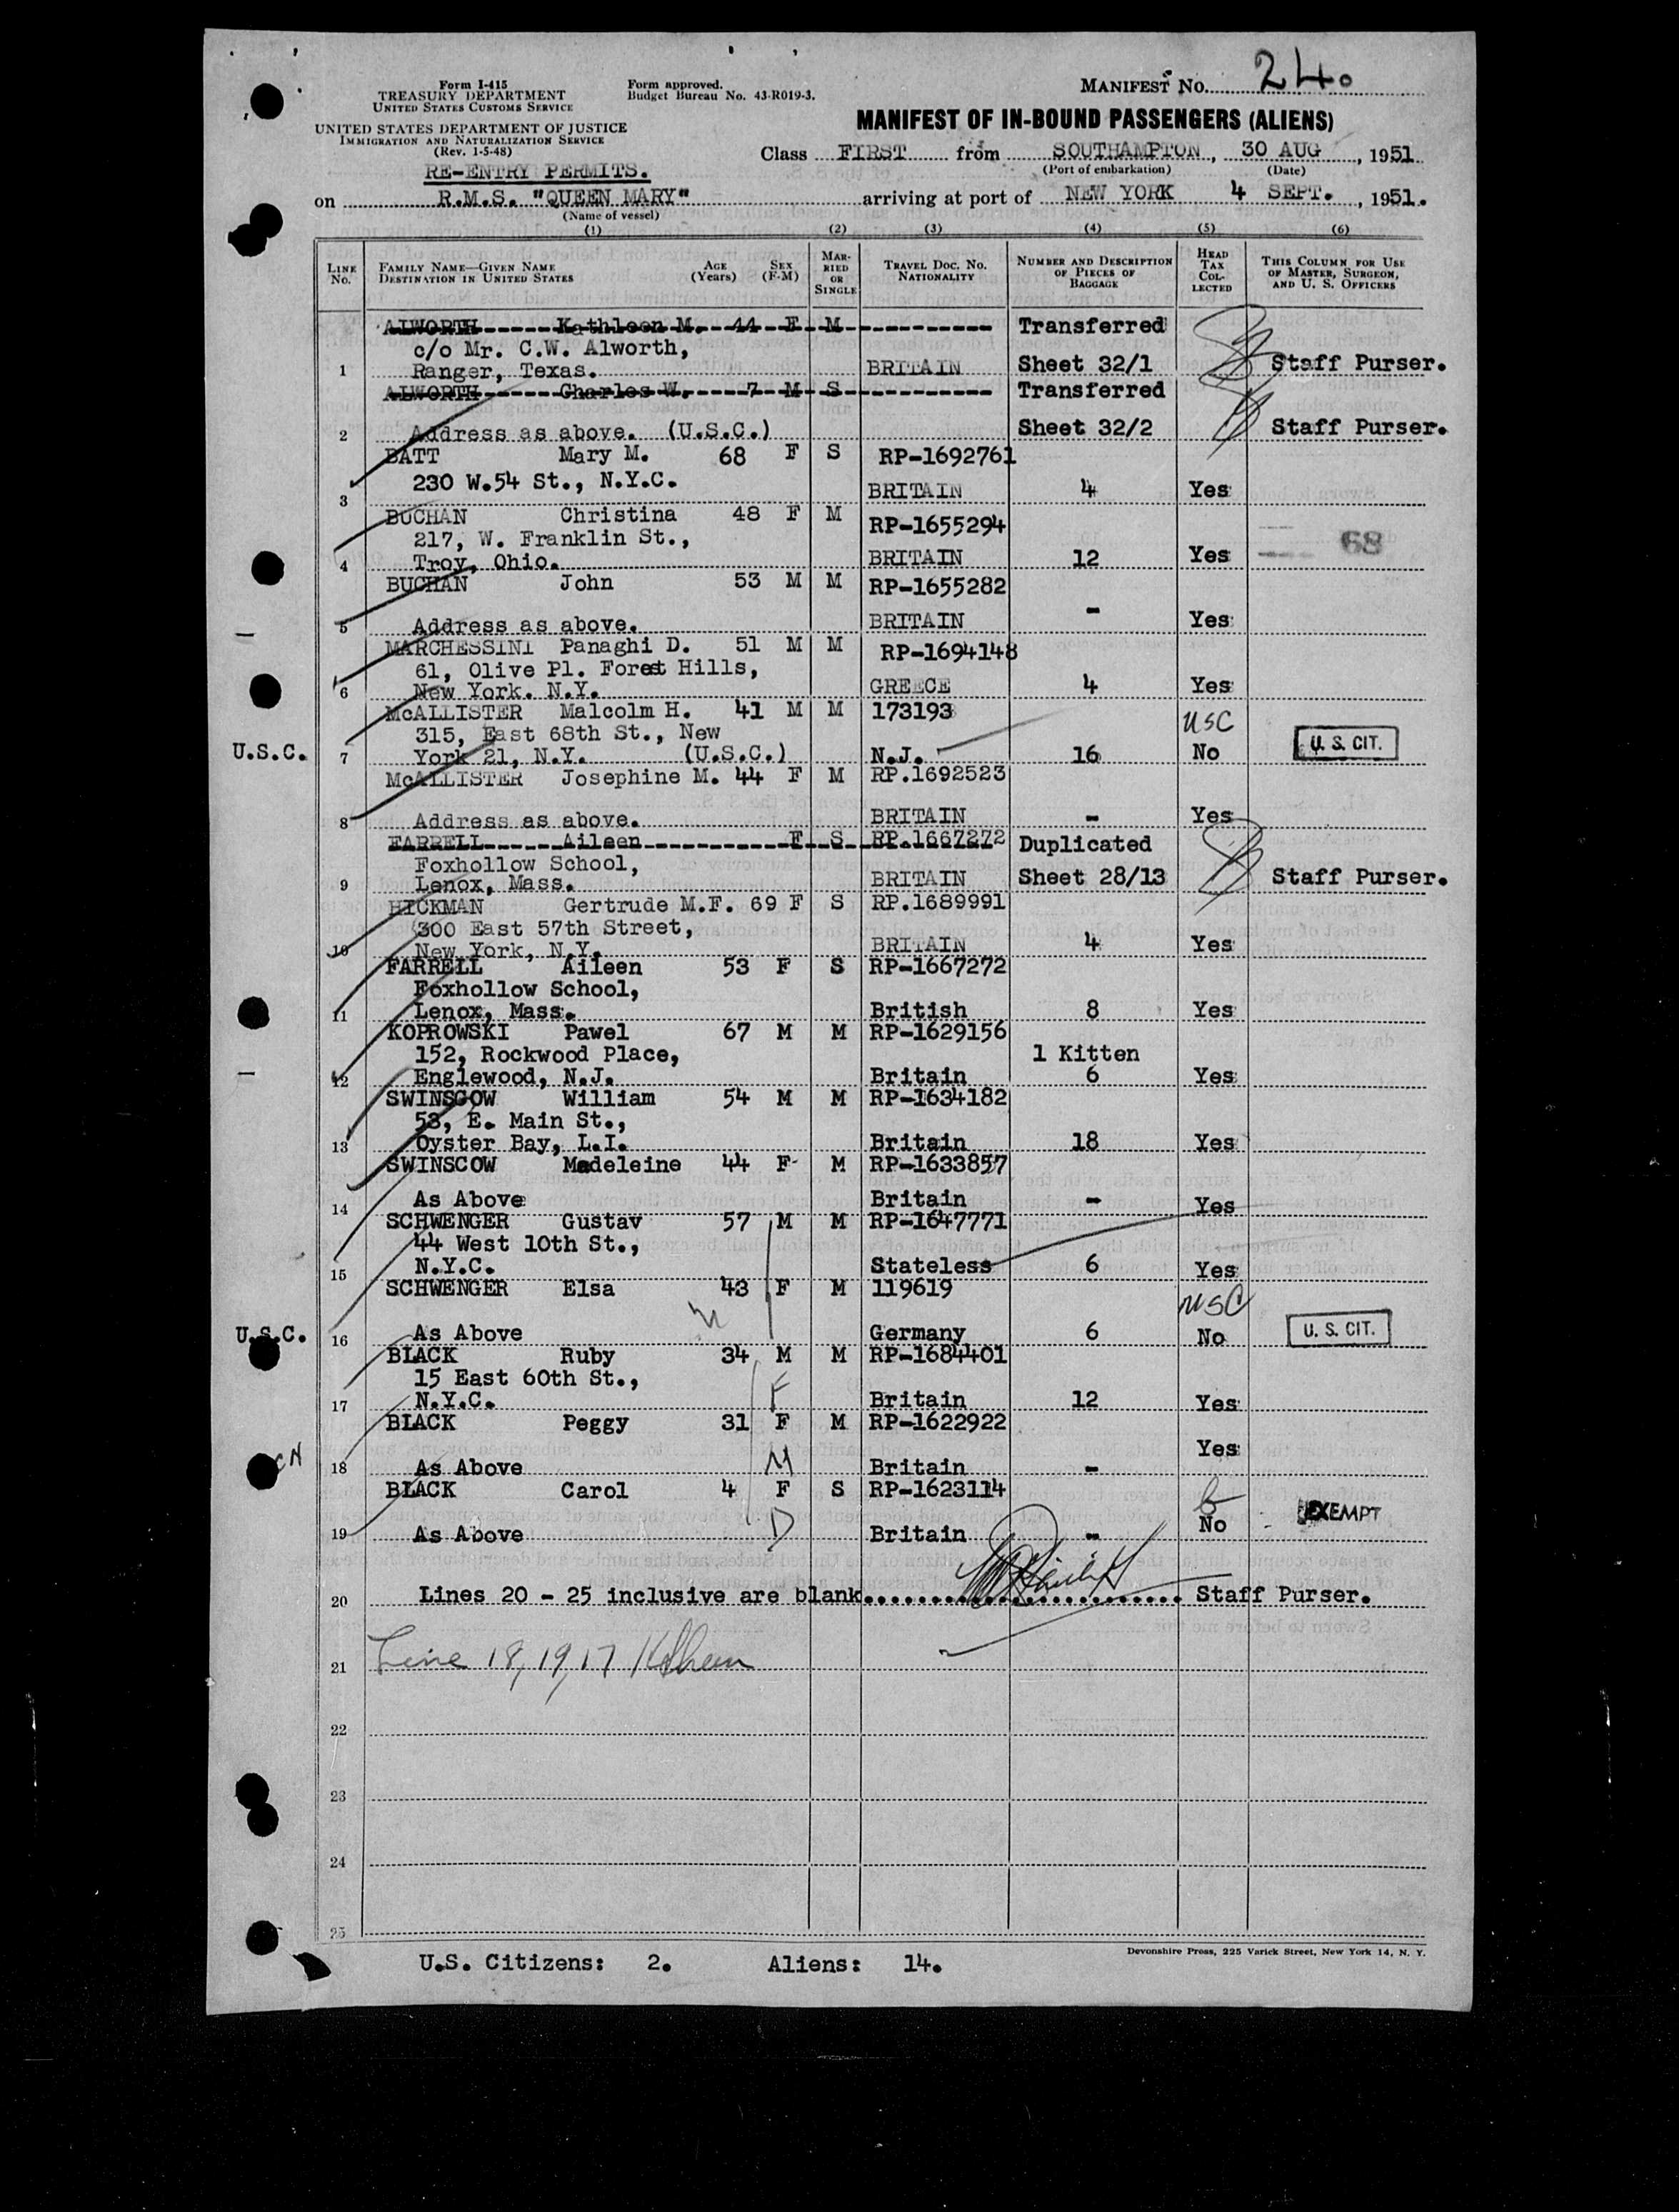 Form I-415
TREASURY DEPARTMENT
UNITED STATES CUSTOMS SERVICE
UNITED STATES DEPARTMENT OF JUSTICE
IMMIGRATION AND NATURALIZATION SERVICE
(Rev. 1-5-48)
Form approved.
Budget Bureau No. 43-R019-3.
MANIFEST No. 24.
MANIFEST OF IN-BOUND PASSENGERS (ALIENS)
Class FIRST from SOUTHAMPTON, 30 AUG, 1951
(Port of embarkation) (Date)
RE-ENTRY PERMITS.
on R.M.S. "QUEEN MARY" arriving at port of NEW YORK 4 SEPT., 1951.
(Name of vessel)
(1) (2) (3) (4) (5) (6)
LINE No. FAMILY NAME—GIVEN NAME DESTINATION IN UNITED STATES AGE (Years) SEX (F-M) MARRIED OR SINGLE TRAVEL DOC. NO. NATIONALITY NUMBER AND DESCRIPTION OF PIECES OF BAGGAGE HEAD TAX COLLECTED THIS COLUMN FOR USE OF MASTER, SURGEON, AND U. S. OFFICERS
ALWORTH Kathleen M. 44 F M Transferred
c/o Mr. C.W. Alworth,
1 Ranger, Texas. BRITAIN Sheet 32/1 Staff Purser.
ALWORTH Charles W. 7 M S Transferred
2 Address as above. (U.S.C.) Sheet 32/2 Staff Purser.
BATT Mary M. 68 F S RP-1692761
3 230 W.54 St., N.Y.C. BRITAIN 4 Yes
BUCHAN Christina 48 F M RP-1655294
217, W. Franklin St.,
4 Troy, Ohio. BRITAIN 12 Yes 68
BUCHAN John 53 M M RP-1655282
5 Address as above. BRITAIN - Yes
MARCHESSINI Panaghi D. 51 M M RP-1694148
61, Olive Pl. Forest Hills,
6 New York. N.Y. GREECE 4 Yes
McALLISTER Malcolm H. 41 M M 173193 USC
315, East 68th St., New
U.S.C. 7 York 21, N.Y. (U.S.C.) N.J. 16 No U. S. CIT.
McALLISTER Josephine M. 44 F M RP.1692523
8 Address as above. BRITAIN - Yes
FARRELL Aileen F S RP.1667272 Duplicated
Foxhollow School,
9 Lenox, Mass. BRITAIN Sheet 28/13 Staff Purser.
HICKMAN Gertrude M.F. 69 F S RP.1689991
300 East 57th Street,
10 New York, N.Y. BRITAIN 4 Yes
FARRELL Aileen 53 F S RP-1667272
Foxhollow School,
11 Lenox, Mass. British 8 Yes
KOPROWSKI Pawel 67 M M RP-1629156
152, Rockwood Place, 1 Kitten
12 Englewood, N.J. Britain 6 Yes
SWINSCOW William 54 M M RP-1634182
53, E. Main St.,
13 Oyster Bay, L.I. Britain 18 Yes
SWINSCOW Madeleine 44 F M RP-1633857
14 As Above Britain - Yes
SCHWENGER Gustav 57 M M RP-1647771
44 West 10th St.,
15 N.Y.C. Stateless 6 Yes
SCHWENGER Elsa 43 F M 119619 USC
U.S.C. 16 As Above Germany 6 No U. S. CIT.
BLACK Ruby 34 M M RP-1684401
15 East 60th St.,
17 N.Y.C. F Britain 12 Yes
BLACK Peggy 31 F M RP-1622922
18 As Above M Britain - Yes
BLACK Carol 4 F S RP-1623114
19 As Above D Britain - No EXEMPT
20 Lines 20 - 25 inclusive are blank........................ Staff Purser.
21 Line 18, 19, 17
22
23
24
25
Devonshire Press, 225 Varick Street, New York 14, N. Y.
U.S. Citizens: 2. Aliens: 14.